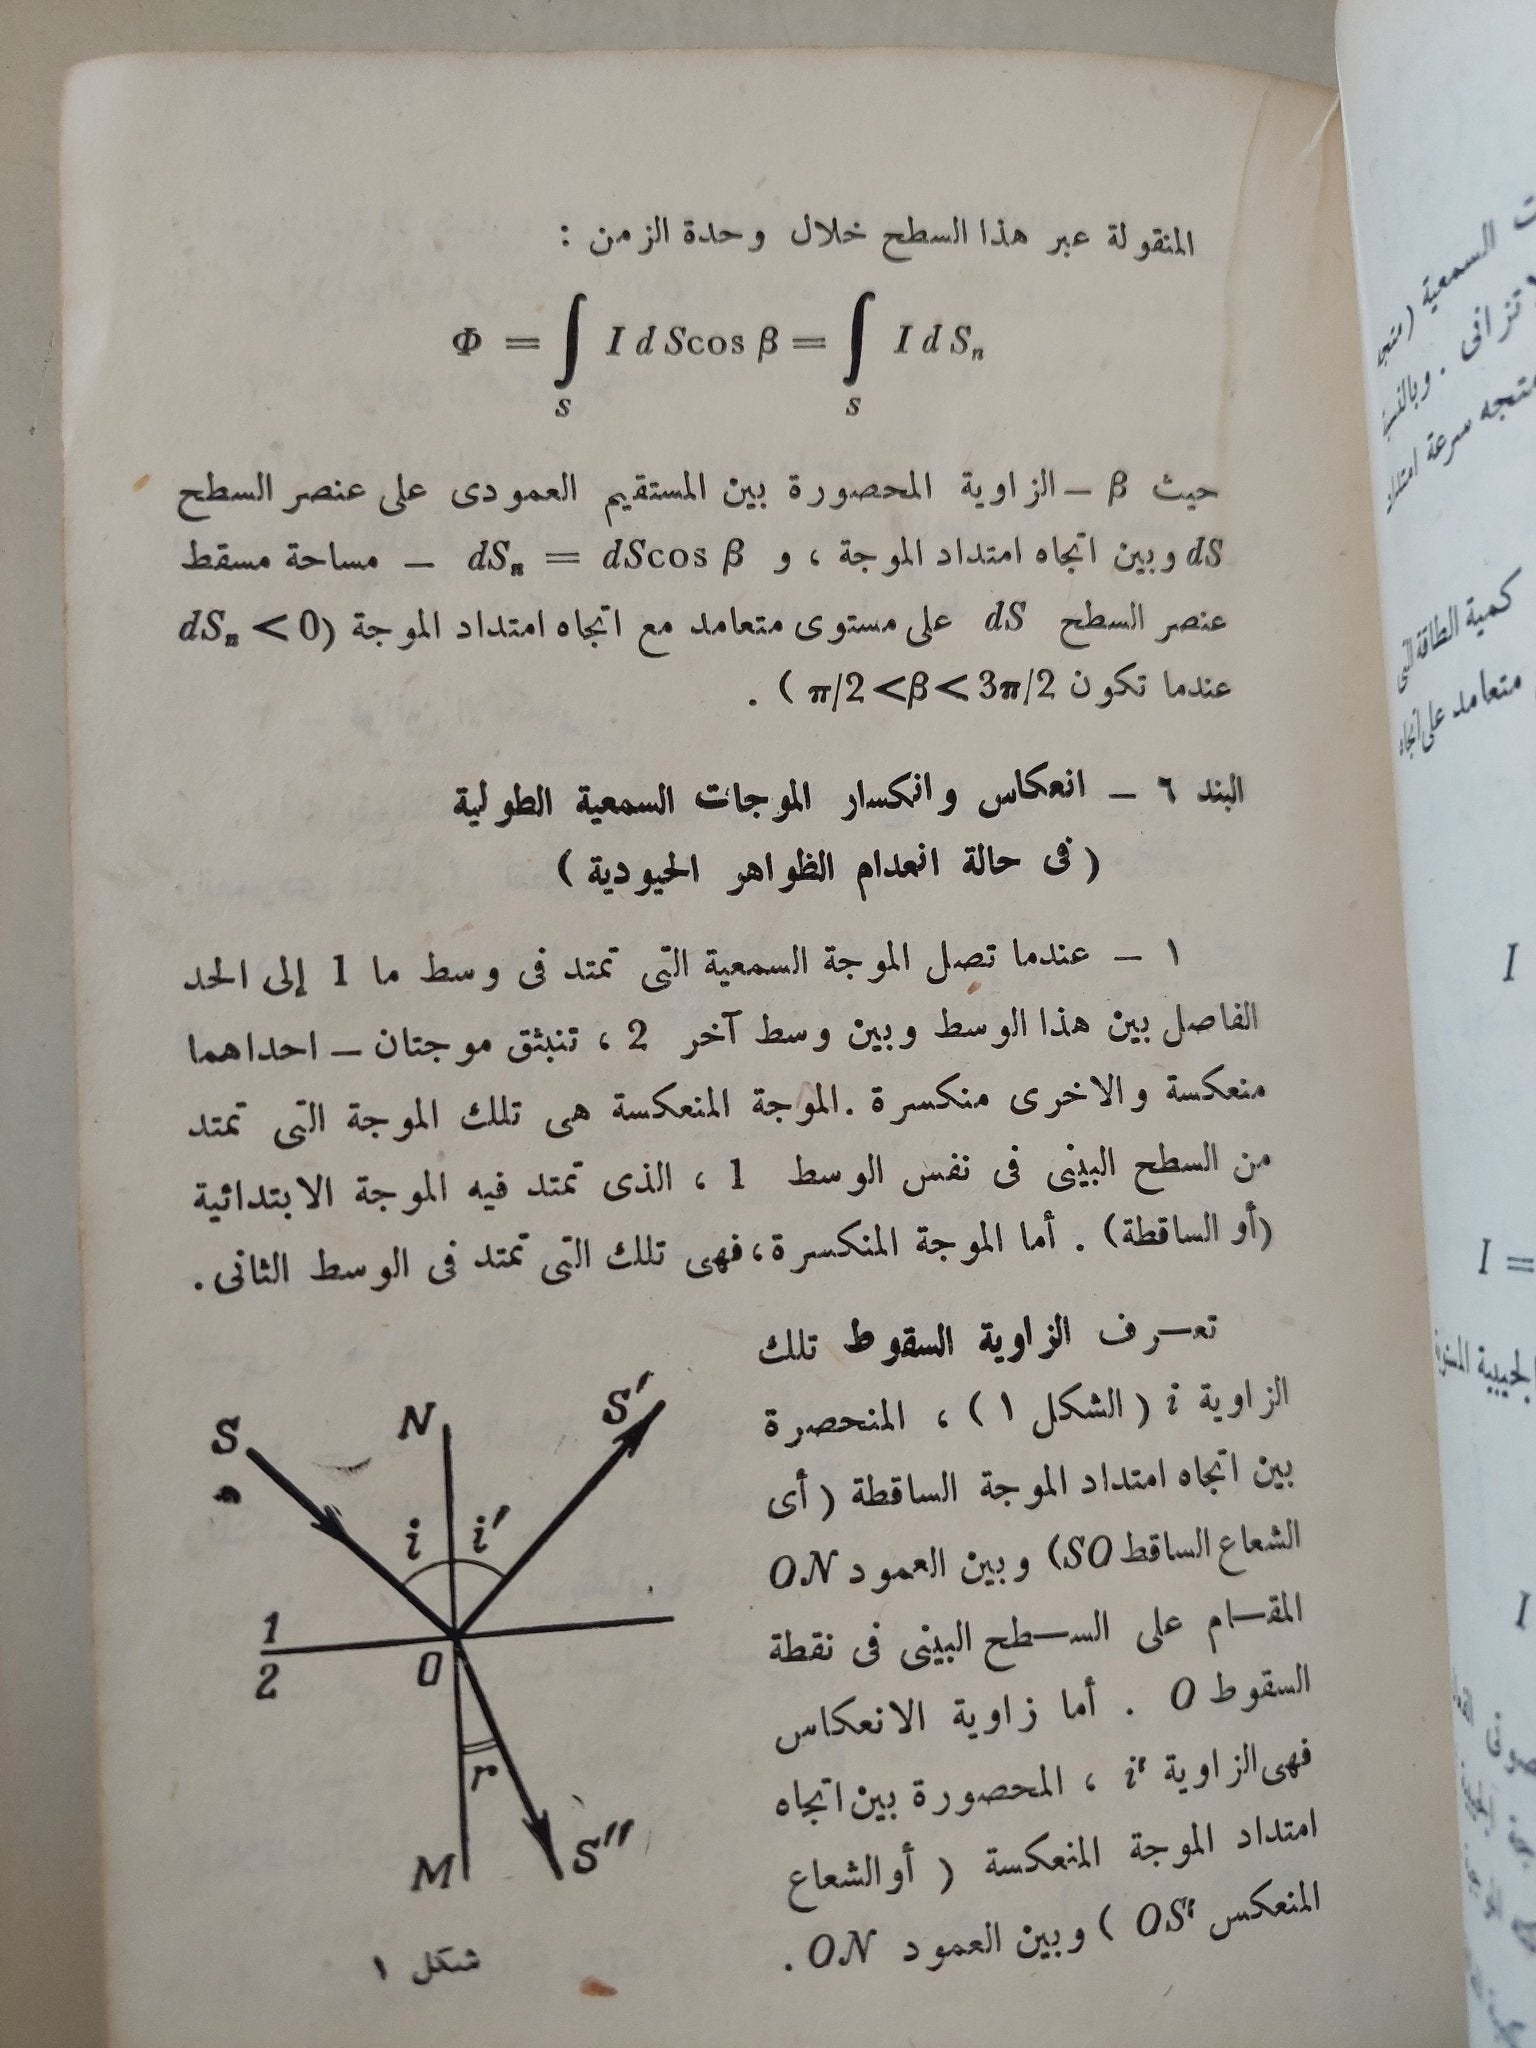 المنقولة عبر هذا السطح خلال وحدة الزمن :
Φ = ∫ I d Scos β = ∫ I d Sn
S S
حيث β – الزاوية المحصورة بين المستقيم العمودى على عنصر السطح
dS وبين اتجاه امتداد الموجة ، و dSn = dScos β – مساحة مسقط
عنصر السطح dS على مستوى متعامد مع اتجاه امتداد الموجة (dSn < 0
عندما تكون π/2 <β< 3π/2 ) .
البند ٦ – انعكاس وانكسار الموجات السمعية الطولية
( فى حالة انعدام الظواهر الحيودية )
١ – عندما تصل الموجة السمعية التى تمتد فى وسط ما 1 إلى الحد
الفاصل بين هذا الوسط وبين وسط آخر 2 ، تنبثق موجتان – احداهما
منعكسة والاخرى منكسرة . الموجة المنعكسة هى تلك الموجة التى تمتد
من السطح البينى فى نفس الوسط 1 ، الذى تمتد فيه الموجة الابتدائية
(أو الساقطة) . أما الموجة المنكسرة ، فهى تلك التى تمتد فى الوسط الثانى .
تعرف الزاوية السقوط تلك
الزاوية i ( الشكل ١ ) ، المنحصرة
بين اتجاه امتداد الموجة الساقطة ( أى
الشعاع الساقط SO) وبين العمود ON
المقام على السطح البينى فى نقطة
السقوط O . أما زاوية الانعكاس
فهى الزاوية i' ، المحصورة بين اتجاه
امتداد الموجة المنعكسة ( أو الشعاع
المنعكس OS' ) وبين العمود ON .
S N S'
i i'
1
2 O
r
M S''
شكل ١
ت السمعية (متجه
متجه سرعة امتداد
كمية الطاقة التى
متعامد على اتجاه
I
= I
I